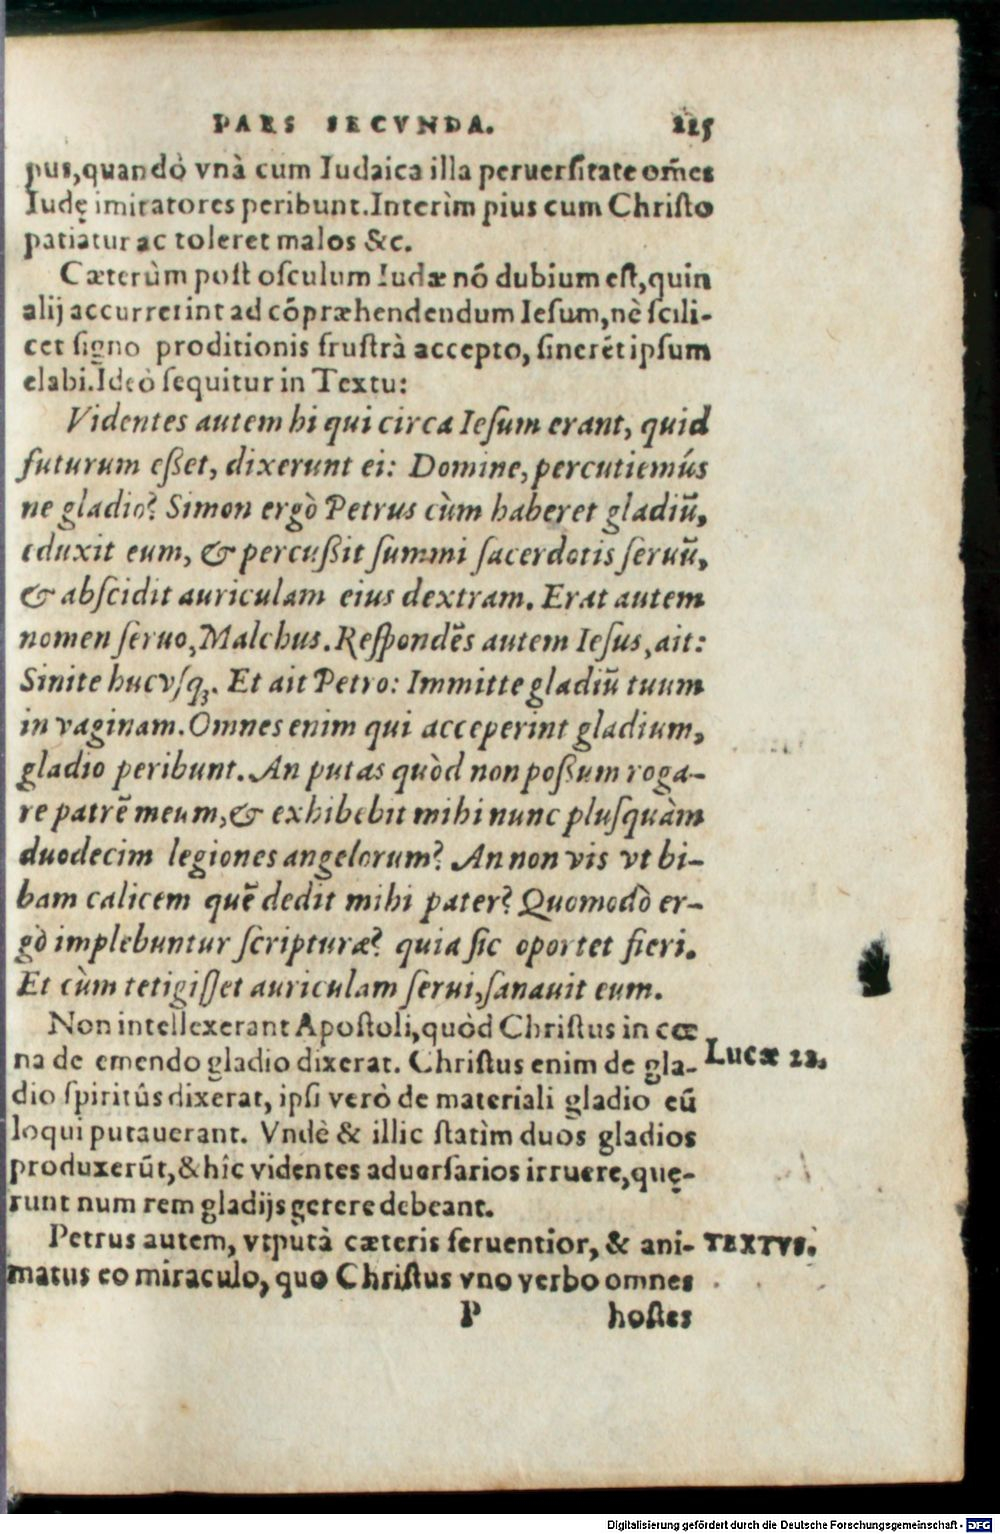 PARS SECVNDA. 225
pus, quandò vnà cum Iudaica illa peruersitate om̃es
Iudę imitatores peribunt. Interìm pius cum Christo
patiatur ac toleret malos &c.
Cæterùm post osculum Iudæ nõ dubium est, quin
alij accurrerint ad cõpræhendendum Iesum, nè scili-
cet signo proditionis frustrà accepto, sinerẽt ipsum
elabi. Ideò sequitur in Textu:
Videntes autem hi qui circa Iesum erant, quid
futurum eßet, dixerunt ei: Domine, percutiemús
ne gladio? Simon ergò Petrus cùm haberet gladiũ,
eduxit eum, & percußit summi sacerdotis seruũ,
& abscidit auriculam eius dextram. Erat autem
nomen seruo, Malchus. Respondẽs autem Iesus, ait:
Sinite hucvsq;. Et ait Petro: Immitte gladiũ tuum
in vaginam. Omnes enim qui acceperint gladium,
gladio peribunt. An putas quòd non poßum roga-
re patrẽ meum, & exhibebit mihi nunc plusquàm
duodecim legiones angelorum? An non vis vt bi-
bam calicem quẽ dedit mihi pater? Quomodò er-
gò implebuntur scripturæ? quia sic oportet fieri.
Et cùm tetigisset auriculam serui, sanauit eum.
Non intellexerant Apostoli, quòd Christus in cœ
na de emendo gladio dixerat. Christus enim de gla-
Lucæ 22.
dio spiritûs dixerat, ipsi verò de materiali gladio eũ
loqui putauerant. Vndè & illic statìm duos gladios
produxerũt, & hîc videntes aduersarios irruere, quę-
runt num rem gladijs gerere debeant.
Petrus autem, vtputà cæteris feruentior, & ani-
TEXTVS.
matus eo miraculo, quo Christus vno verbo omnes
P hostes
Digitalisierung gefördert durch die Deutsche Forschungsgemeinschaft - DFG